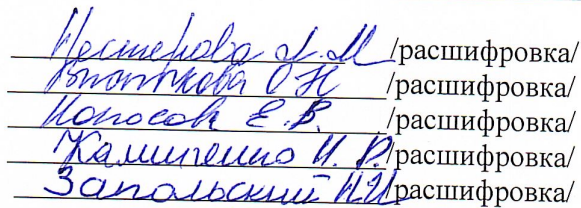 Нестерова Л.М /расшифровка/
О Н /расшифровка/
Колосов Е.В. /расшифровка/
И.В. /расшифровка/
Запольский Н.И /расшифровка/